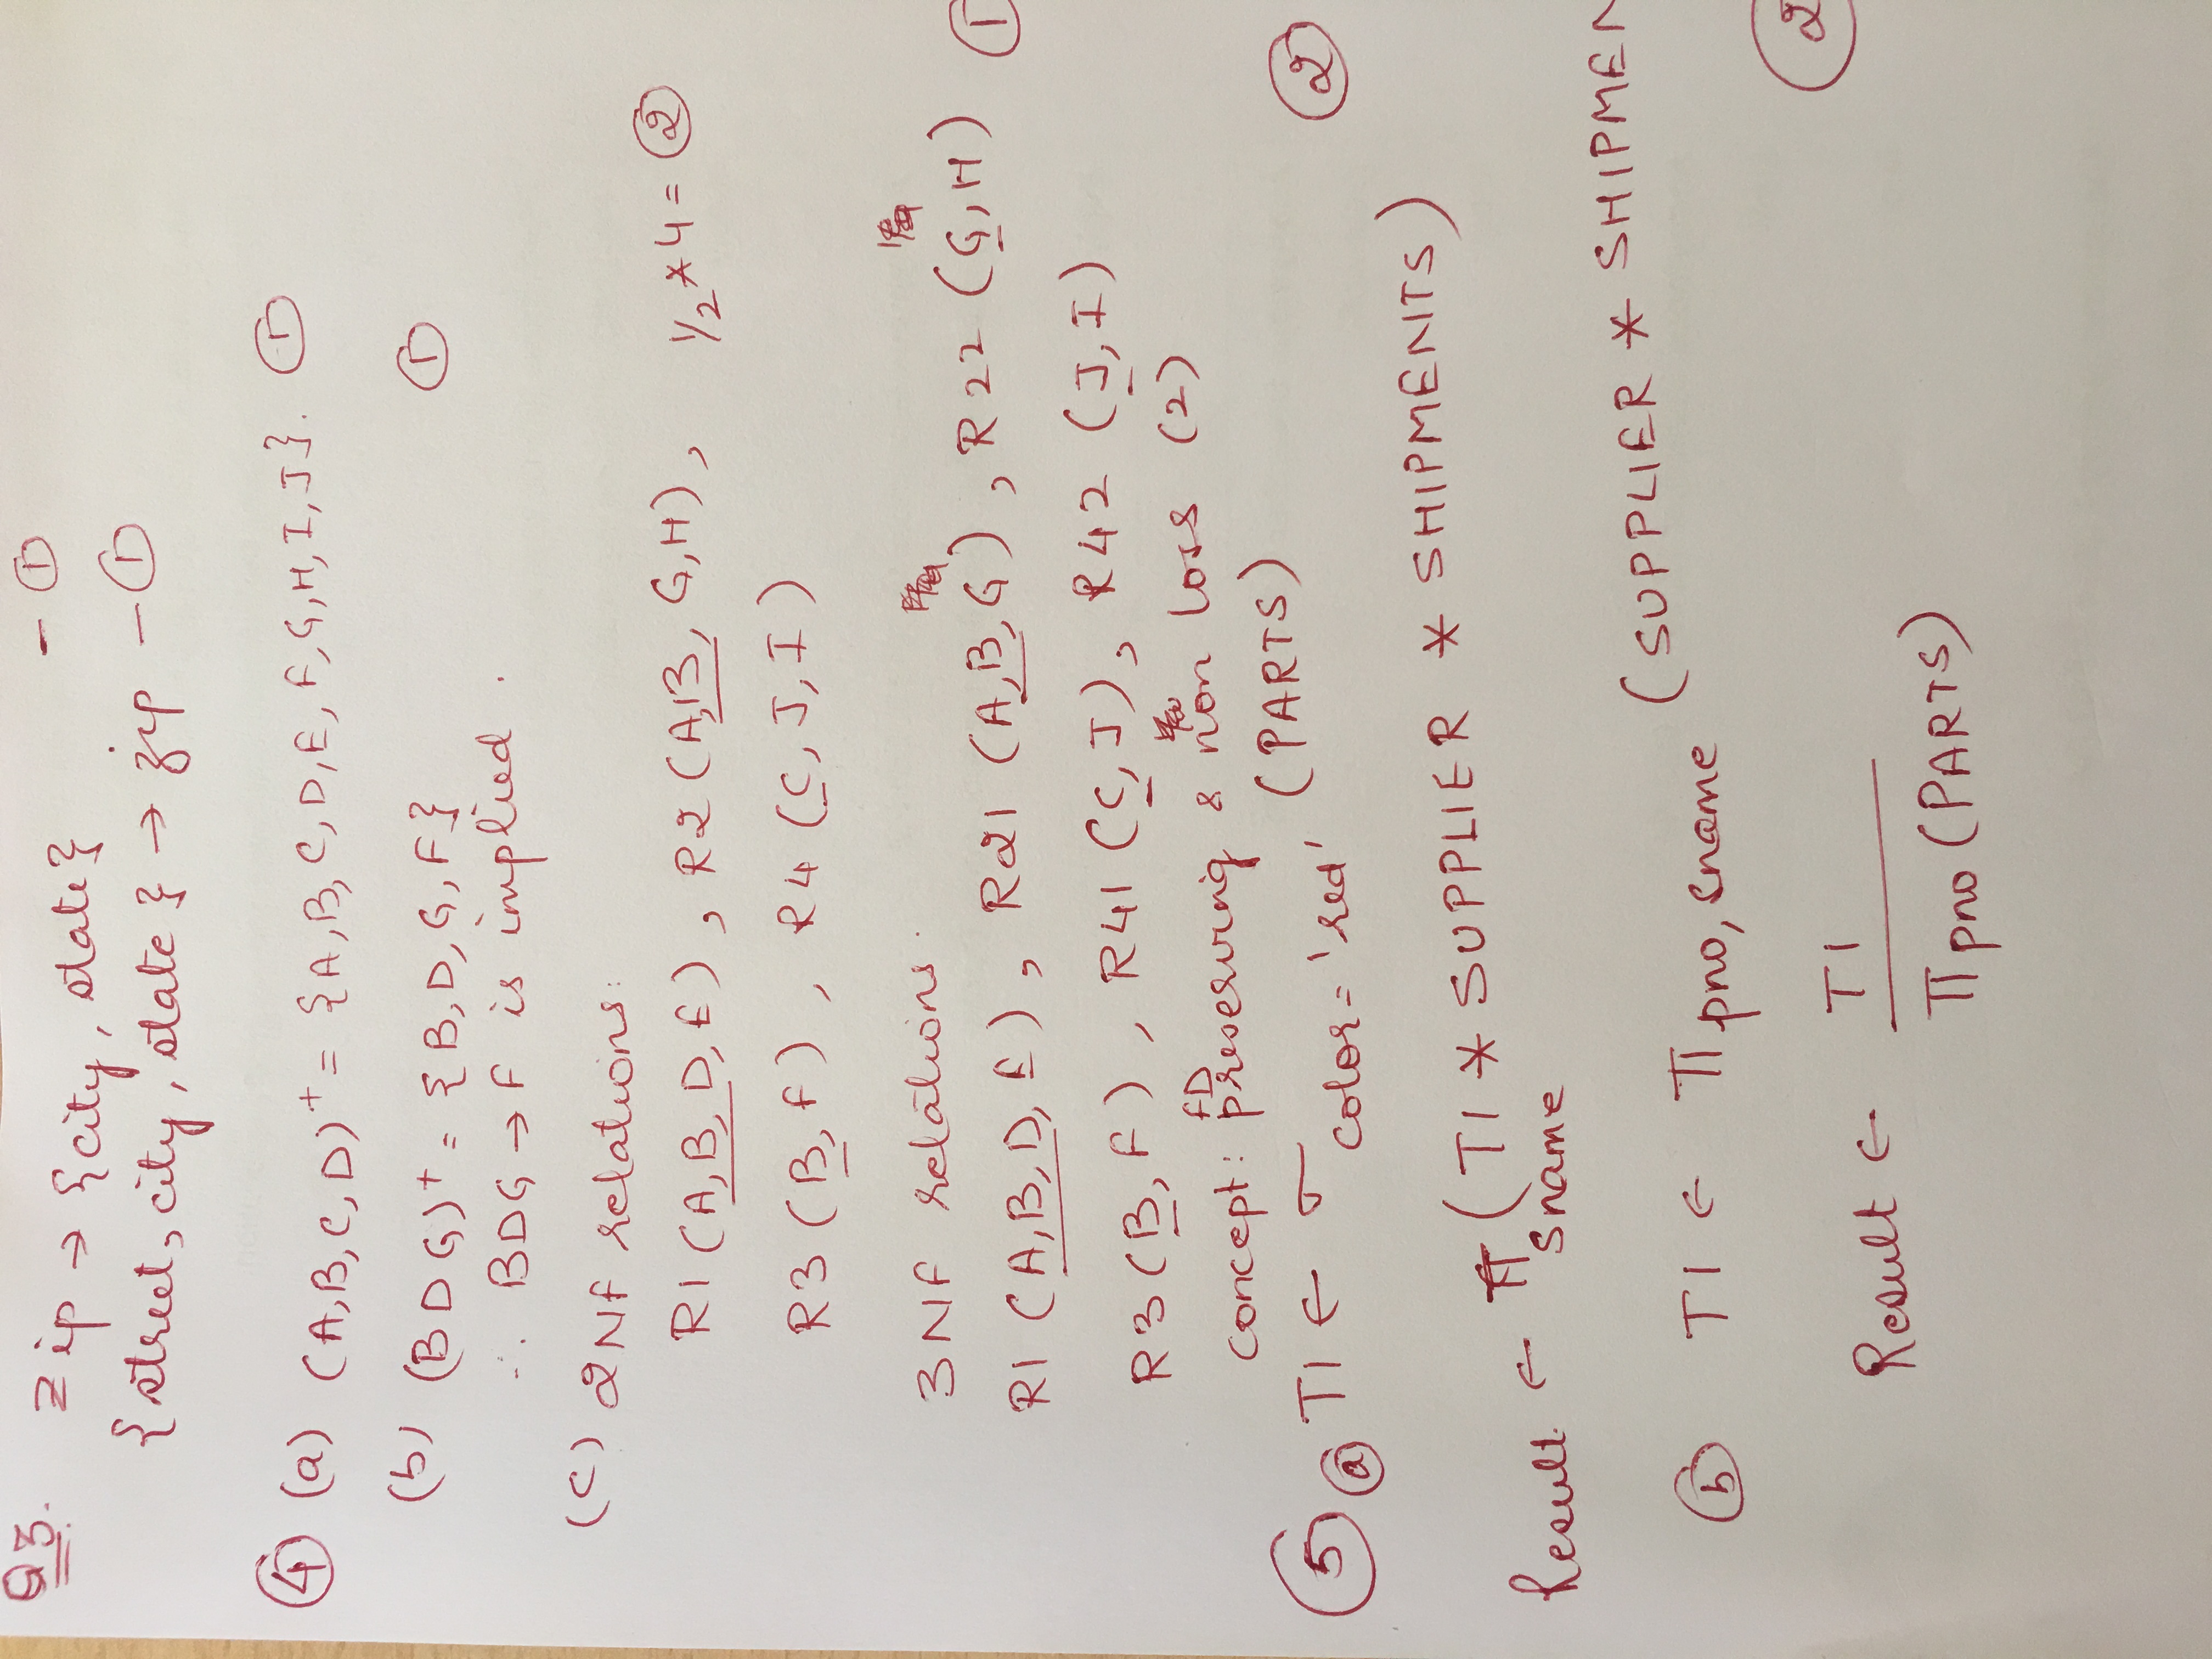 Q3. Zip → {city, state} - ①
{street, city, state} → zip - ①
④ (a) (A,B,C,D)⁺ = {A,B,C,D,E,F,G,H,I,J}. ①
(b) (BDG)⁺ = {B,D,G,F} ①
∴ BDG → F is implied.
(c) 2NF relations:
R1 (A,B,D,E), R2 (A,B, G,H), 1/2 * 4 = ②
R3 (B,F), R4 (C,J,I)
3NF relations.
R1 (A,B,D,E), R21 (A,B,G), R22 (G,H) ①
R3 (B,F), R41 (C,J), R42 (J,I)
concept: FD preserving & non loss (2)
⑤ ⓐ T1 ← σ color='red' (PARTS) ②
Result ← π sname (T1 * SUPPLIER * SHIPMENTS)
ⓑ T1 ← π pno, sname (SUPPLIER * SHIPMEN
②
Result ← T1
π pno (PARTS)